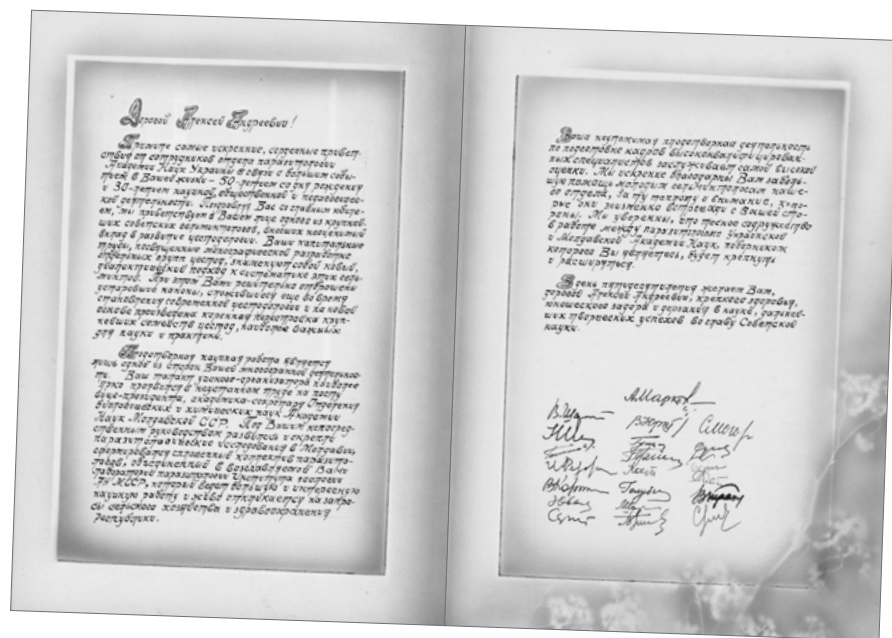 Дорогой Алексей Андреевич!
Примите самые искренние, сердечные приветствия
от сотрудников отдела паразитологии
Академии Наук Украины в связи с большим собы-
тием в Вашей жизни – 50-летием со дня рождения
и 30-летием научной, общественной и педагогичес-
кой деятельности. Поздравляя Вас со славным юбиле-
ем, мы приветствуем в Вашем лице одного из крупней-
ших советских гельминтологов, внёсших неоценимый
вклад в развитие цестодологии. Ваши капитальные
труды, посвященные монографической разработке
отдельных групп цестод, знаменуют собой новый,
диалектический подход к систематике этих гель-
минтов. При этом Вами решительно отброшены
устаревшие каноны, сложившиеся еще во время
становления современной цестодологии и на новой
основе произведена коренная перестройка круп-
нейших семейств цестод, наиболее важных
для науки и практики.
Плодотворная научная работа является
лишь одной из сторон Вашей многогранной деятельнос-
ти. Ваш талант ученого-организатора наиболее
ярко проявился в неустанном труде на посту
вице-президента, академика-секретаря Отделения
биологических и химических наук Академии
Наук Молдавской ССР. Под Вашим непосред-
ственным руководством развились и окрепли
паразитологические исследования в Молдавии,
сформировался сплоченный коллектив паразито-
логов, объединенный в возглавляемой Вами
лаборатории паразитологии Института зоологии
АН МССР, который ведет большую и интересную
научную работу и живо откликается на запро-
сы сельского хозяйства и здравоохранения
республики.
Ваша неутомимая плодотворная деятельность
по подготовке кадров высококвалифицирован-
ных специалистов заслуживает самой высокой
оценки. Мы искренне благодарны Вам за боль-
шую помощь молодым гельминтологам наше-
го отдела, за ту теплоту и внимание, кото-
рые они неизменно встречали с Вашей сто-
роны. Мы уверены, что тесное содружество
в работе между паразитологами Украинской
и Молдавской Академий Наук, поборником
которого Вы являетесь, будет крепнуть
и расширяться.
В день пятидесятилетия желаем Вам,
дорогой Алексей Андреевич, крепкого здоровья,
юношеского задора и дерзания в науке, дальней-
ших творческих успехов во славу Советской
науки.